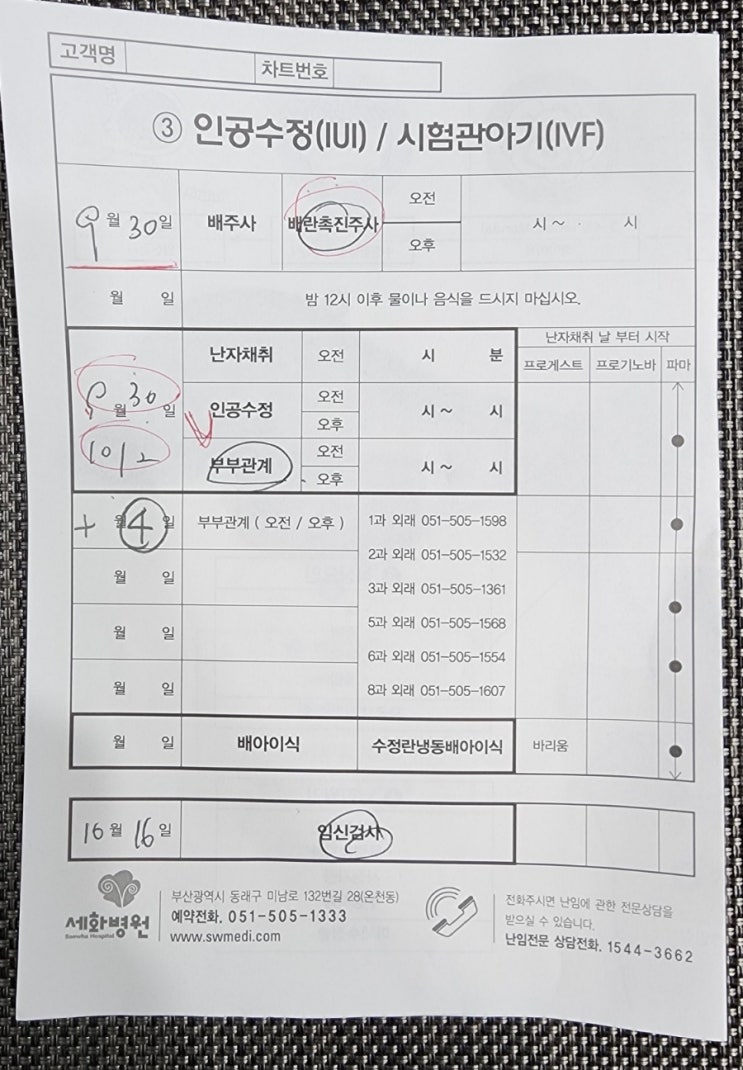 고객명
차트번호
③ 인공수정(IUI) / 시험관아기(IVF)
9월 30일 배주사 배란촉진주사 오전 시 ~ 시
오후
월 일 밤 12시 이후 물이나 음식을 드시지 마십시오.
난자채취 날 부터 시작
프로게스트 프로기노바 파마
9월 30일
10/2
난자채취 오전 시 분
인공수정 오전 시 ~ 시
오후
부부관계 오전 시 ~ 시
오후
+ 월 4일 부부관계 ( 오전 / 오후 ) 1과 외래 051-505-1598
2과 외래 051-505-1532
월 일 3과 외래 051-505-1361
5과 외래 051-505-1568
월 일 6과 외래 051-505-1554
월 일 8과 외래 051-505-1607
월 일 배아이식 수정란냉동배아이식 바리움
10월 16일 임신검사
세화병원
Saewha Hospital
부산광역시 동래구 미남로 132번길 28(온천동)
예약전화. 051-505-1333
www.swmedi.com
전화주시면 난임에 관한 전문상담을
받으실 수 있습니다.
난임전문 상담전화. 1544-3662